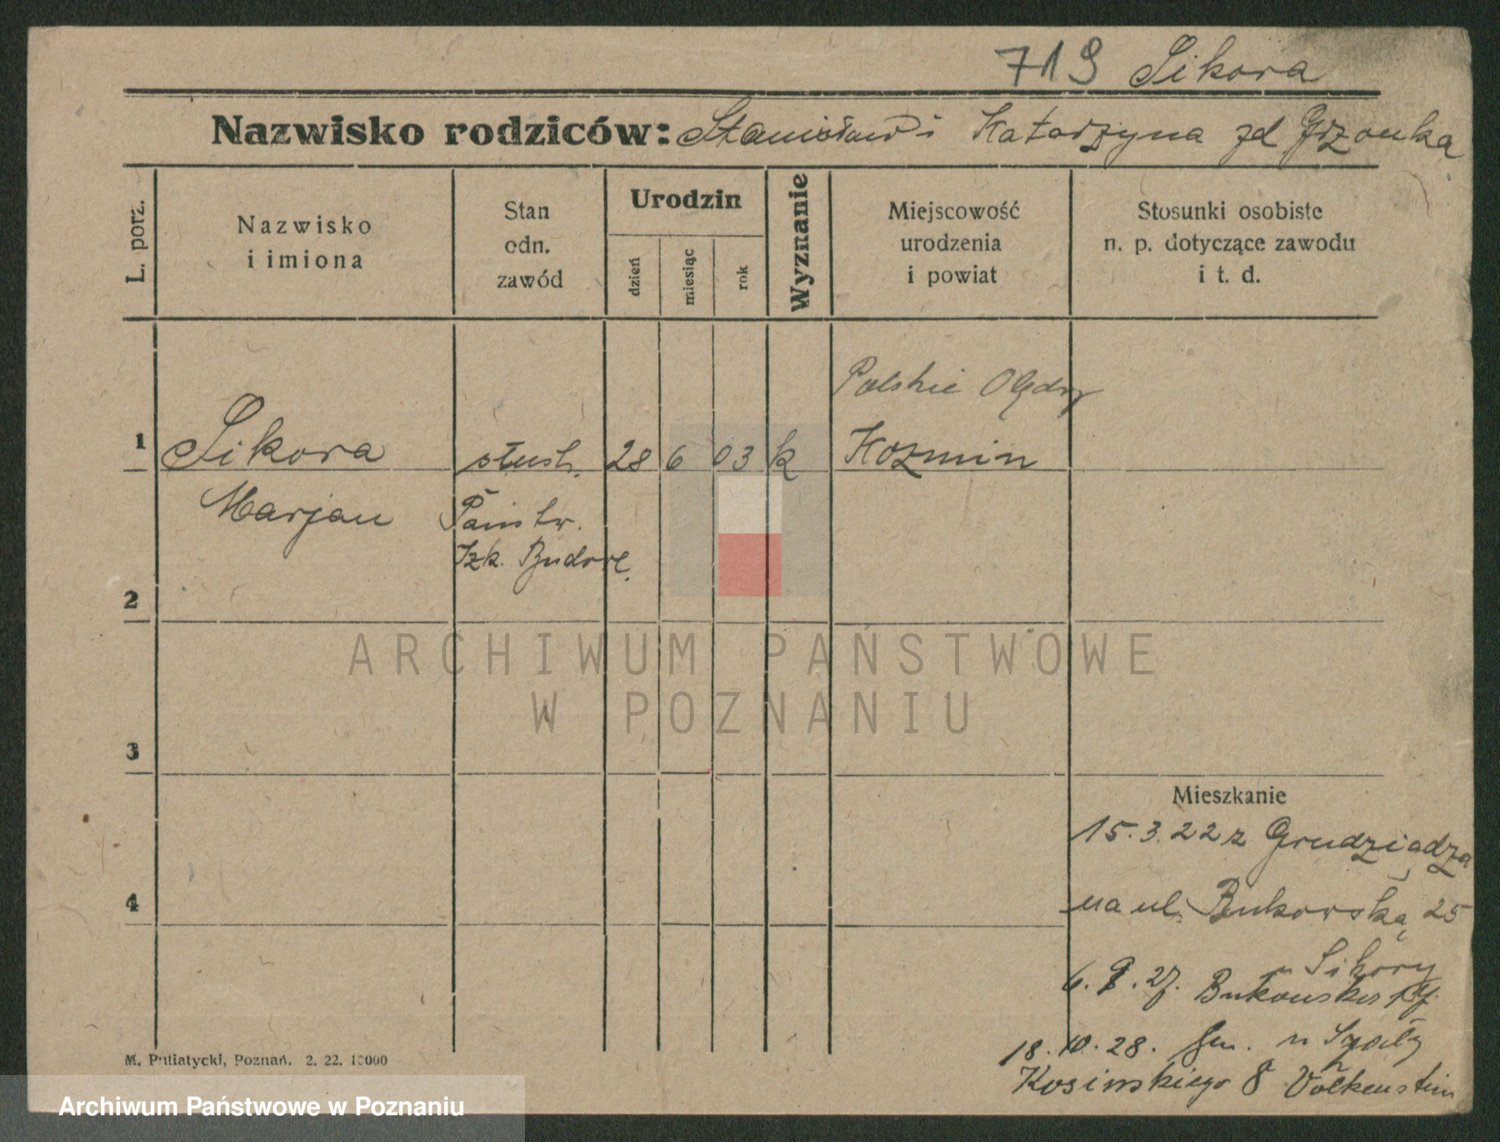 719 Sikora
Nazwisko rodziców: Stanisław i Katarzyna zd Grzonka
L. porz.
Nazwisko
i imiona
Stan
odn.
zawód
Urodzin
dzień
miesiąc
rok
Wyznanie
Miejscowość
urodzenia
i powiat
Stosunki osobiste
n. p. dotyczące zawodu
i t. d.
Polskie
1 Sikora słuch. 28 6 03 k Kozmin
Marjan Państw.
Szk. Budowl.
2
ARCHIWUM PAŃSTWOWE
W POZNANIU
3
Mieszkanie
15.3.22 z Grudziądza
4
na ul. Bukowską 25
u Sikory
6. 9. 27. Bukowska
18.10.28. u
Kosinskiego 8
M. Putiatycki, Poznań. 2. 22. 10000
Archiwum Państwowe w Poznaniu